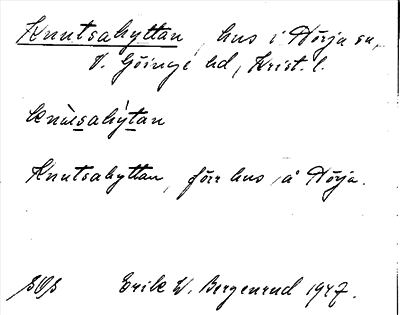 Knutsahyttan, hus i Hörja sn,
V. Göinge hd, Krist. l.
knùsahýtan
Knutsahyttan, förr hus å Hörja.
Erik W. Bergenrud 1947.